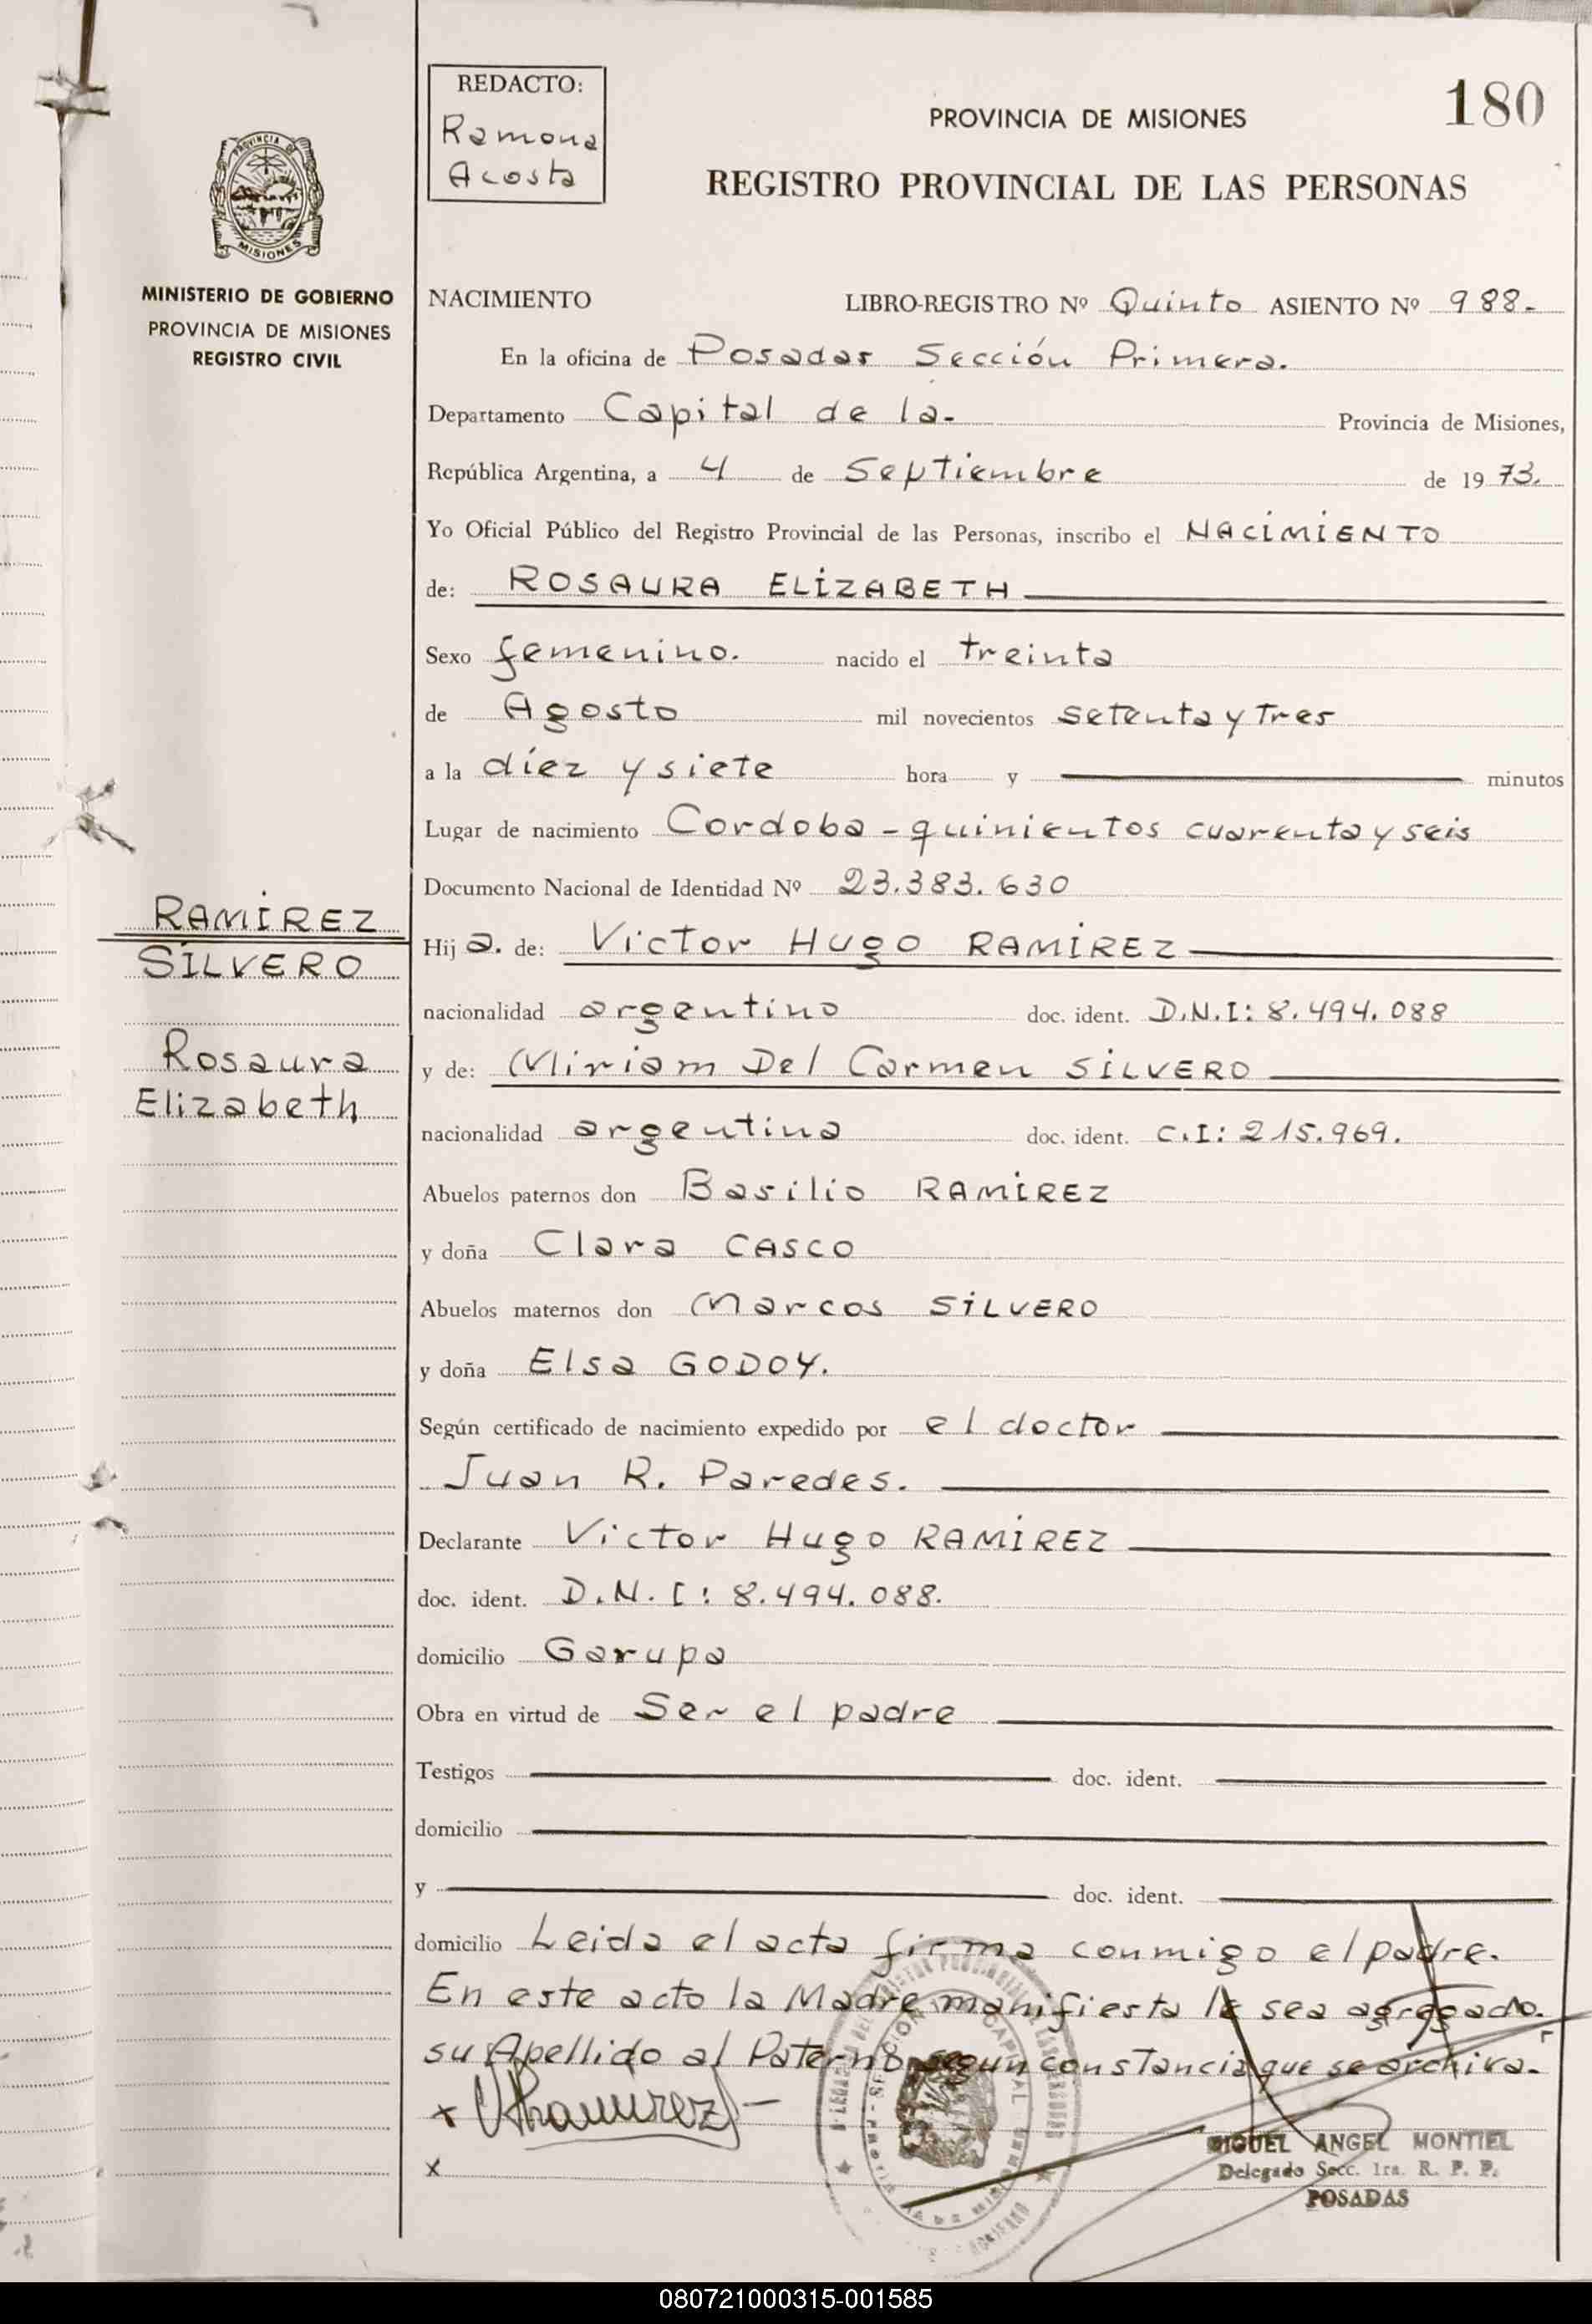 REDACTO:
Ramona
Acosta
PROVINCIA DE MISIONES
180
REGISTRO PROVINCIAL DE LAS PERSONAS
PROVINCIA DE
MISIONES
MINISTERIO DE GOBIERNO
PROVINCIA DE MISIONES
REGISTRO CIVIL
NACIMIENTO LIBRO-REGISTRO Nº Quinto ASIENTO Nº 988.-
En la oficina de Posadas Sección Primera.
Departamento Capital de la- Provincia de Misiones,
República Argentina, a 4 de Septiembre de 1973.
Yo Oficial Público del Registro Provincial de las Personas, inscribo el NACIMIENTO
de: ROSAURA ELIZABETH
Sexo femenino. nacido el treinta
de Agosto mil novecientos setenta y tres
a la diez y siete hora y minutos
Lugar de nacimiento Cordoba - quinientos cuarenta y seis
Documento Nacional de Identidad Nº 23.383.630
RAMIREZ
SILVERO
Rosaura
Elizabeth
Hija. de: Victor Hugo RAMIREZ
nacionalidad argentino doc. ident. D.N.I: 8.494.088
y de: Miriam Del Carmen SILVERO
nacionalidad argentina doc. ident. C.I: 215.969.
Abuelos paternos don Basilio RAMIREZ
y doña Clara CASCO
Abuelos maternos don Marcos SILVERO
y doña Elsa GODOY.
Según certificado de nacimiento expedido por el doctor
Juan R. Paredes.
Declarante Victor Hugo RAMIREZ
doc. ident. D.N.I: 8.494.088.
domicilio Garupa
Obra en virtud de Ser el padre
Testigos doc. ident.
domicilio
y doc. ident.
domicilio Leida el acta firma conmigo el padre.
En este acto la Madre manifiesta le sea agregado.
su Apellido al Paterno segun constancia que se archiva.-
x VHRamirez -
x
MIGUEL ANGEL MONTIEL
Delegado Secc. 1ra. R. P. P.
POSADAS
080721000315-001585